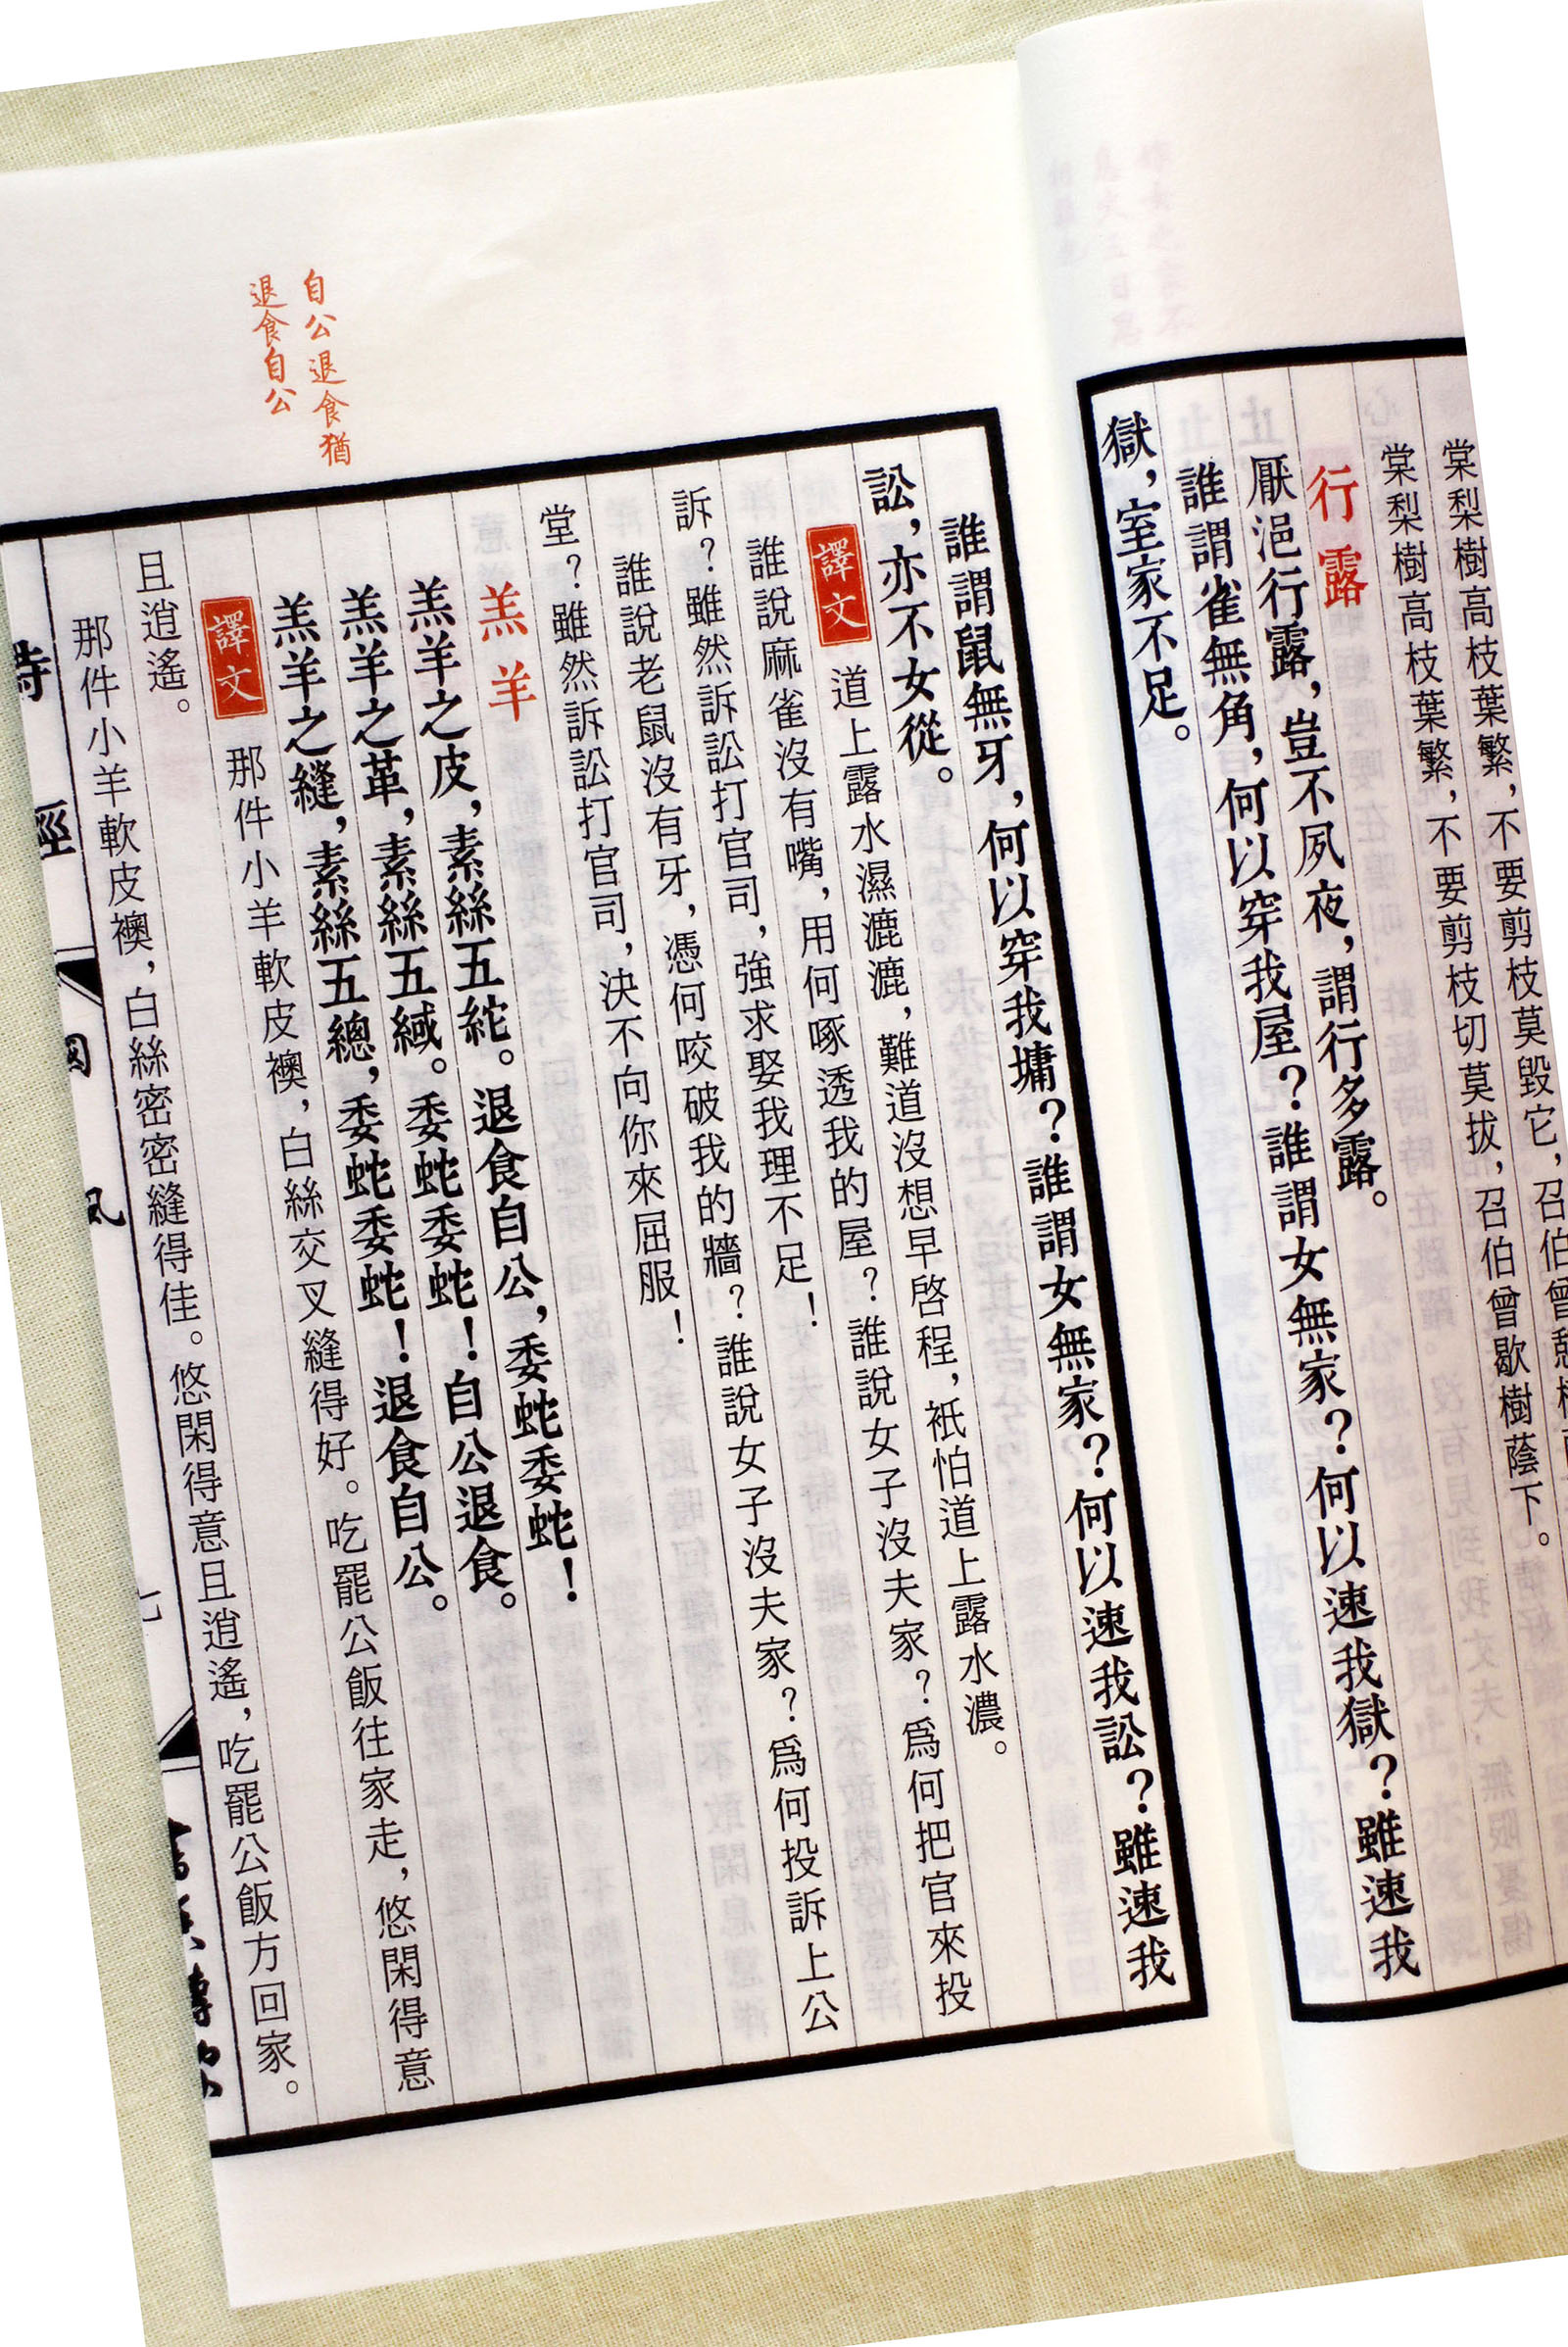 棠梨樹高枝葉繁，不要剪枝莫毀它，召伯曾憩
棠梨樹高枝葉繁，不要剪枝切莫拔，召伯曾歇樹蔭下。
行露
厭浥行露，豈不夙夜，謂行多露。
誰謂雀無角，何以穿我屋？誰謂女無家？何以速我獄？雖速我
獄，室家不足。
誰謂鼠無牙，何以穿我墉？誰謂女無家？何以速我訟？雖速我
訟，亦不女從。
譯文 道上露水濕漉漉，難道沒想早啓程，衹怕道上露水濃。
誰說麻雀沒有嘴，用何啄透我的屋？誰說女子沒夫家？爲何把官來投
訴？雖然訴訟打官司，強求娶我理不足！
誰說老鼠沒有牙，憑何咬破我的牆？誰說女子沒夫家？爲何投訴上公
堂？雖然訴訟打官司，決不向你來屈服！
羔羊
羔羊之皮，素絲五紽。退食自公，委蛇委蛇！
羔羊之革，素絲五緎。委蛇委蛇！自公退食。
羔羊之縫，素絲五總，委蛇委蛇！退食自公。
自公退食猶
退食自公
譯文 那件小羊軟皮襖，白絲交叉縫得好。吃罷公飯往家走，悠閑得意
且逍遙。
那件小羊軟皮襖，白絲密密縫得佳。悠閑得意且逍遙，吃罷公飯方回家。
詩經 國風 七